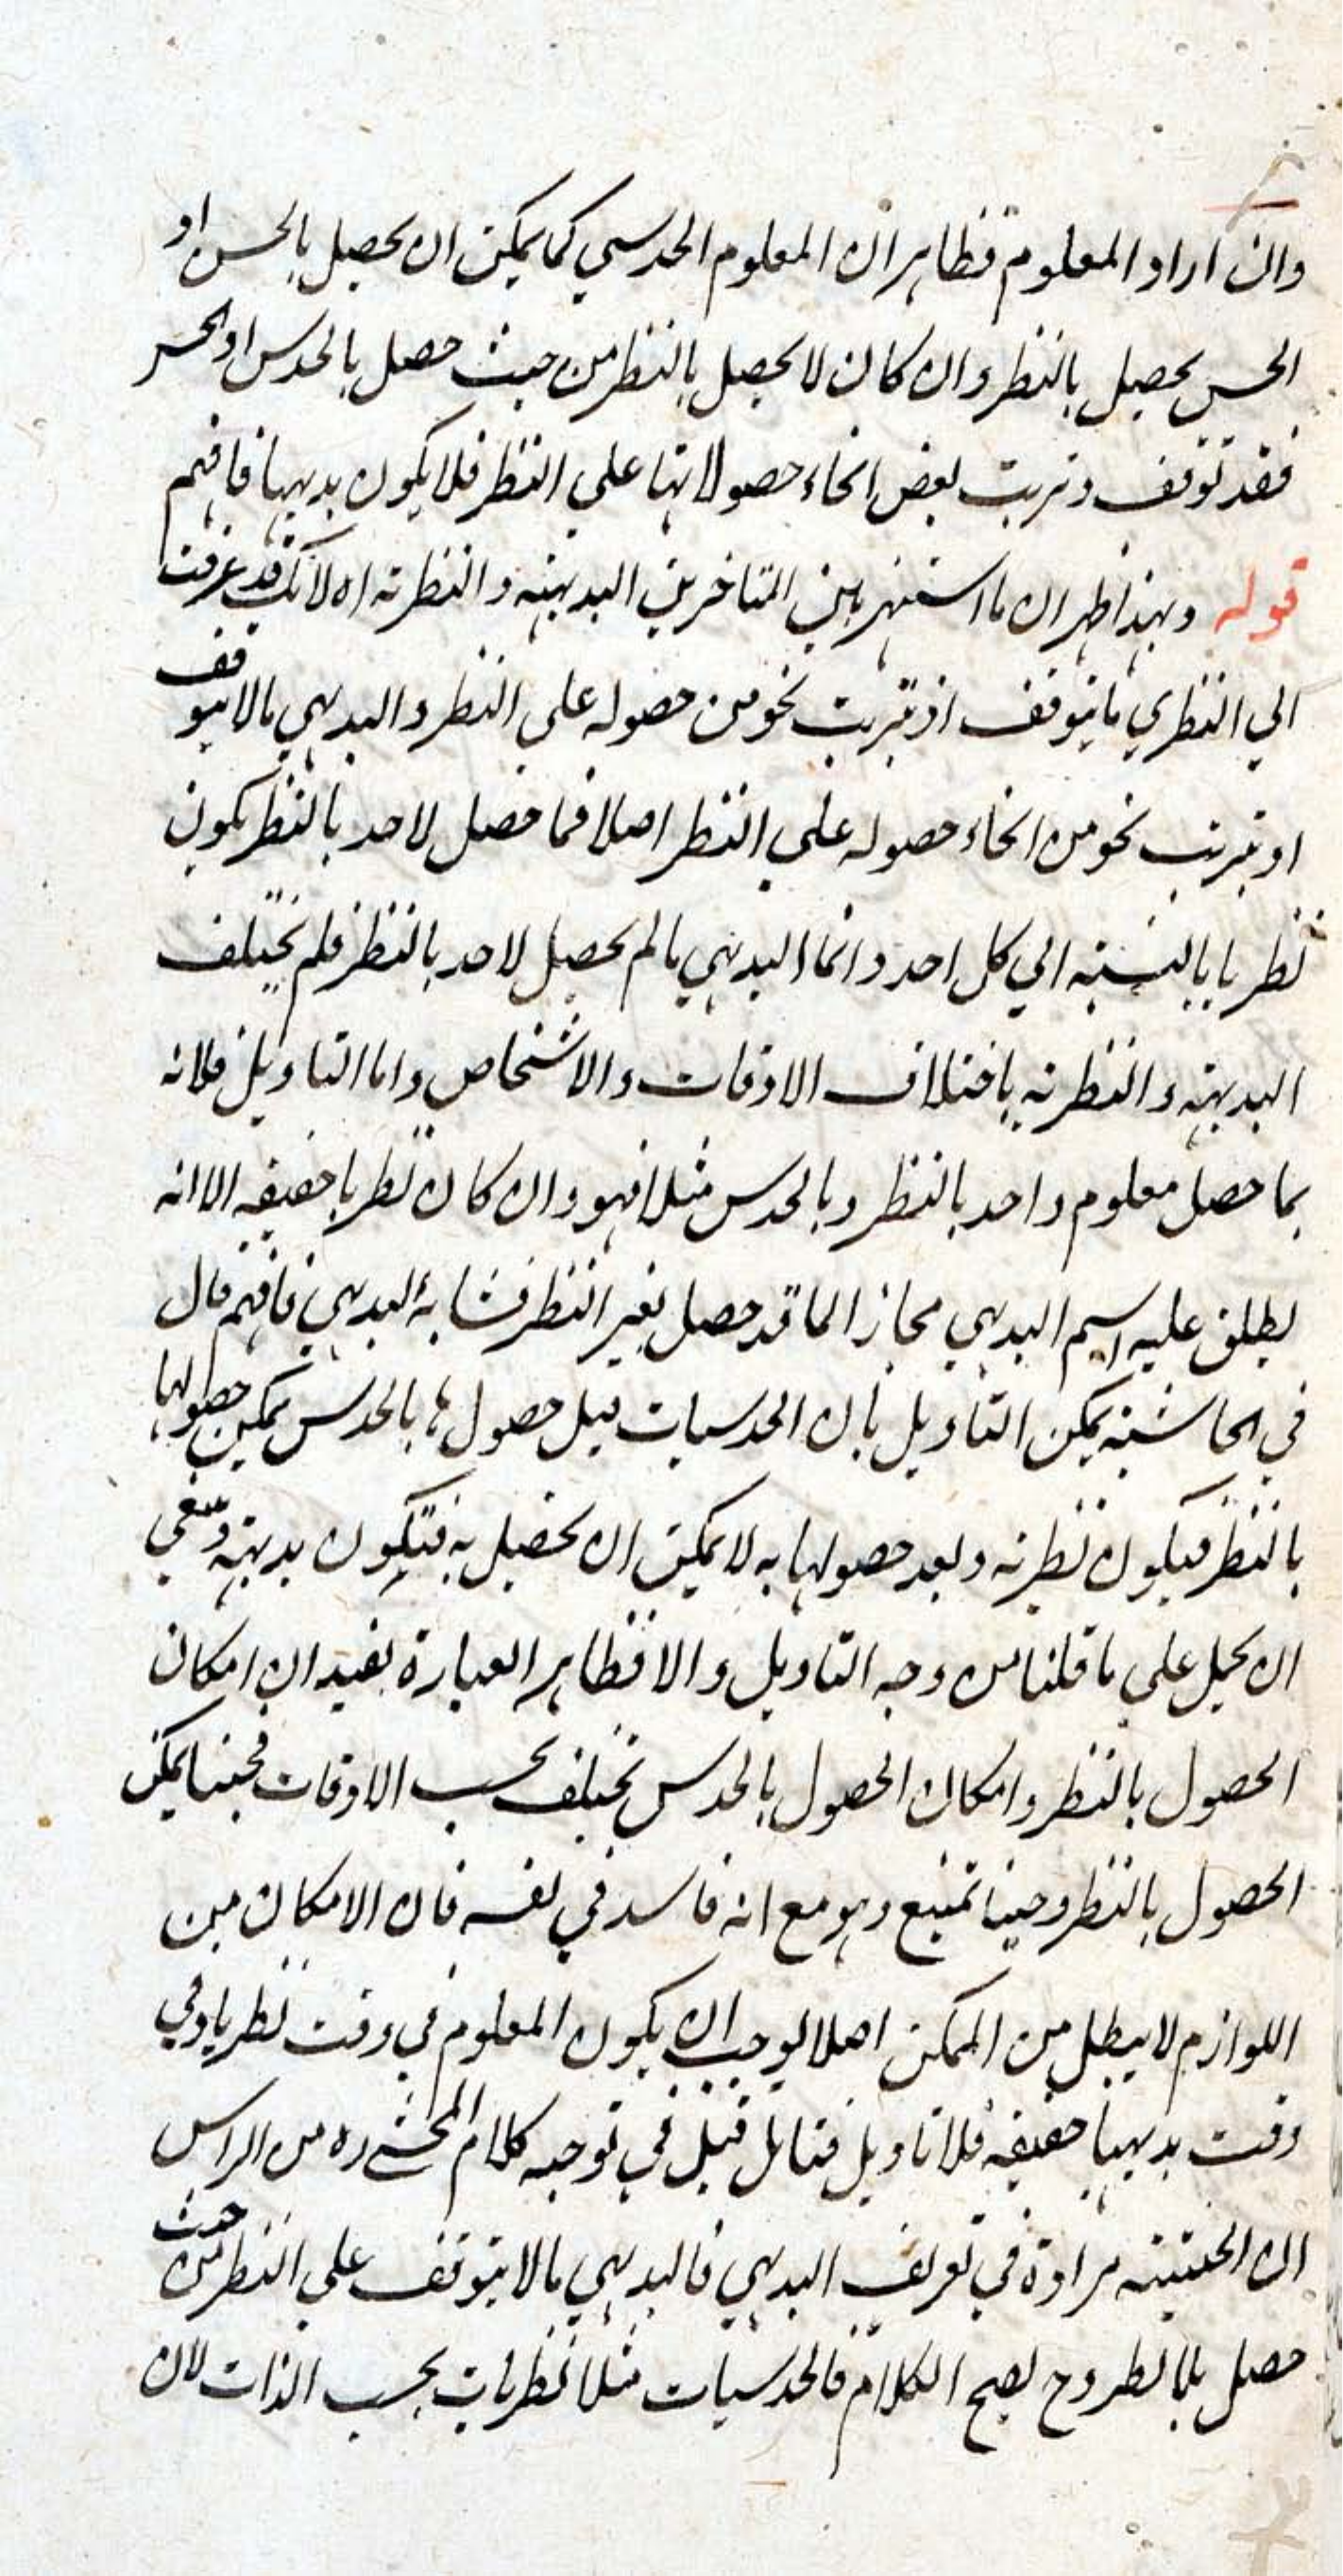 وان اراد المعلوم فظاهر ان المعلوم الحدسي كما يمكن ان يحصل بالحس او
الحس يحصل بالنظر وان كان لا يحصل بالنظر من حيث حصل بالحدس او الحس
فقد توقف وترتب بعض انحاء حصولاتها علي النظر فلا يكون بديهيا فافهم
قوله وبهذا ظهر ان ما اشتهر بين المتاخرين البديهية والنظرية اه لانك قد عرفت
الي النظري ما يتوقف او يترتب نحو من حصوله علي النظر والبديهي ما لا يتوقف
او يترتب نحو من انحاء حصوله علي النظر اصلا فما حصل لاحد بالنظر يكون
نظريا بالنسبة الي كل احد وانما البديهي ما لم يحصل لاحد بالنظر فلم يختلف
البديهية والنظرية باختلاف الاوقات والاشخاص واما التاويل فلانه
بما حصل معلوم واحد بالنظر وبالحدس مثلا فهو وان كان نظريا حقيقة الا انه
يطلق عليه اسم البديهي مجازا لما قد حصل بغير النظر فشابه البديهي فافهم قال
في الحاشية يمكن التاويل بان الحدسيات قبل حصولها بالحدس يمكن حصولها
بالنظر فيكون نظرية وبعد حصولها به لا يمكن ان يحصل به فتكون بديهية وينبغي
ان يحمل علي ما قلنا من وجه التاويل والا فظاهر العبارة يفيد ان امكان
الحصول بالنظر وامكان الحصول بالحدس يختلف بحسب الاوقات فحينا يمكن
الحصول بالنظر وحينا يمتنع وهو مع انه فاسد في نفسه فان الامكان من
اللوازم لا يبطل من الممكن اصلا يوجب ان يكون المعلوم في وقت نظريا وفي
وقت بديهيا حقيقة فلا تاويل فتامل قيل في توجيه كلام المحشي ره من الراس
ان الحيثية مرادة في تعريف البديهي فالبديهي ما لا يتوقف علي النظر من حيث
حصل بلا نظر وح يصح الكلام فالحدسيات مثلا نظريات بحسب الذات لان